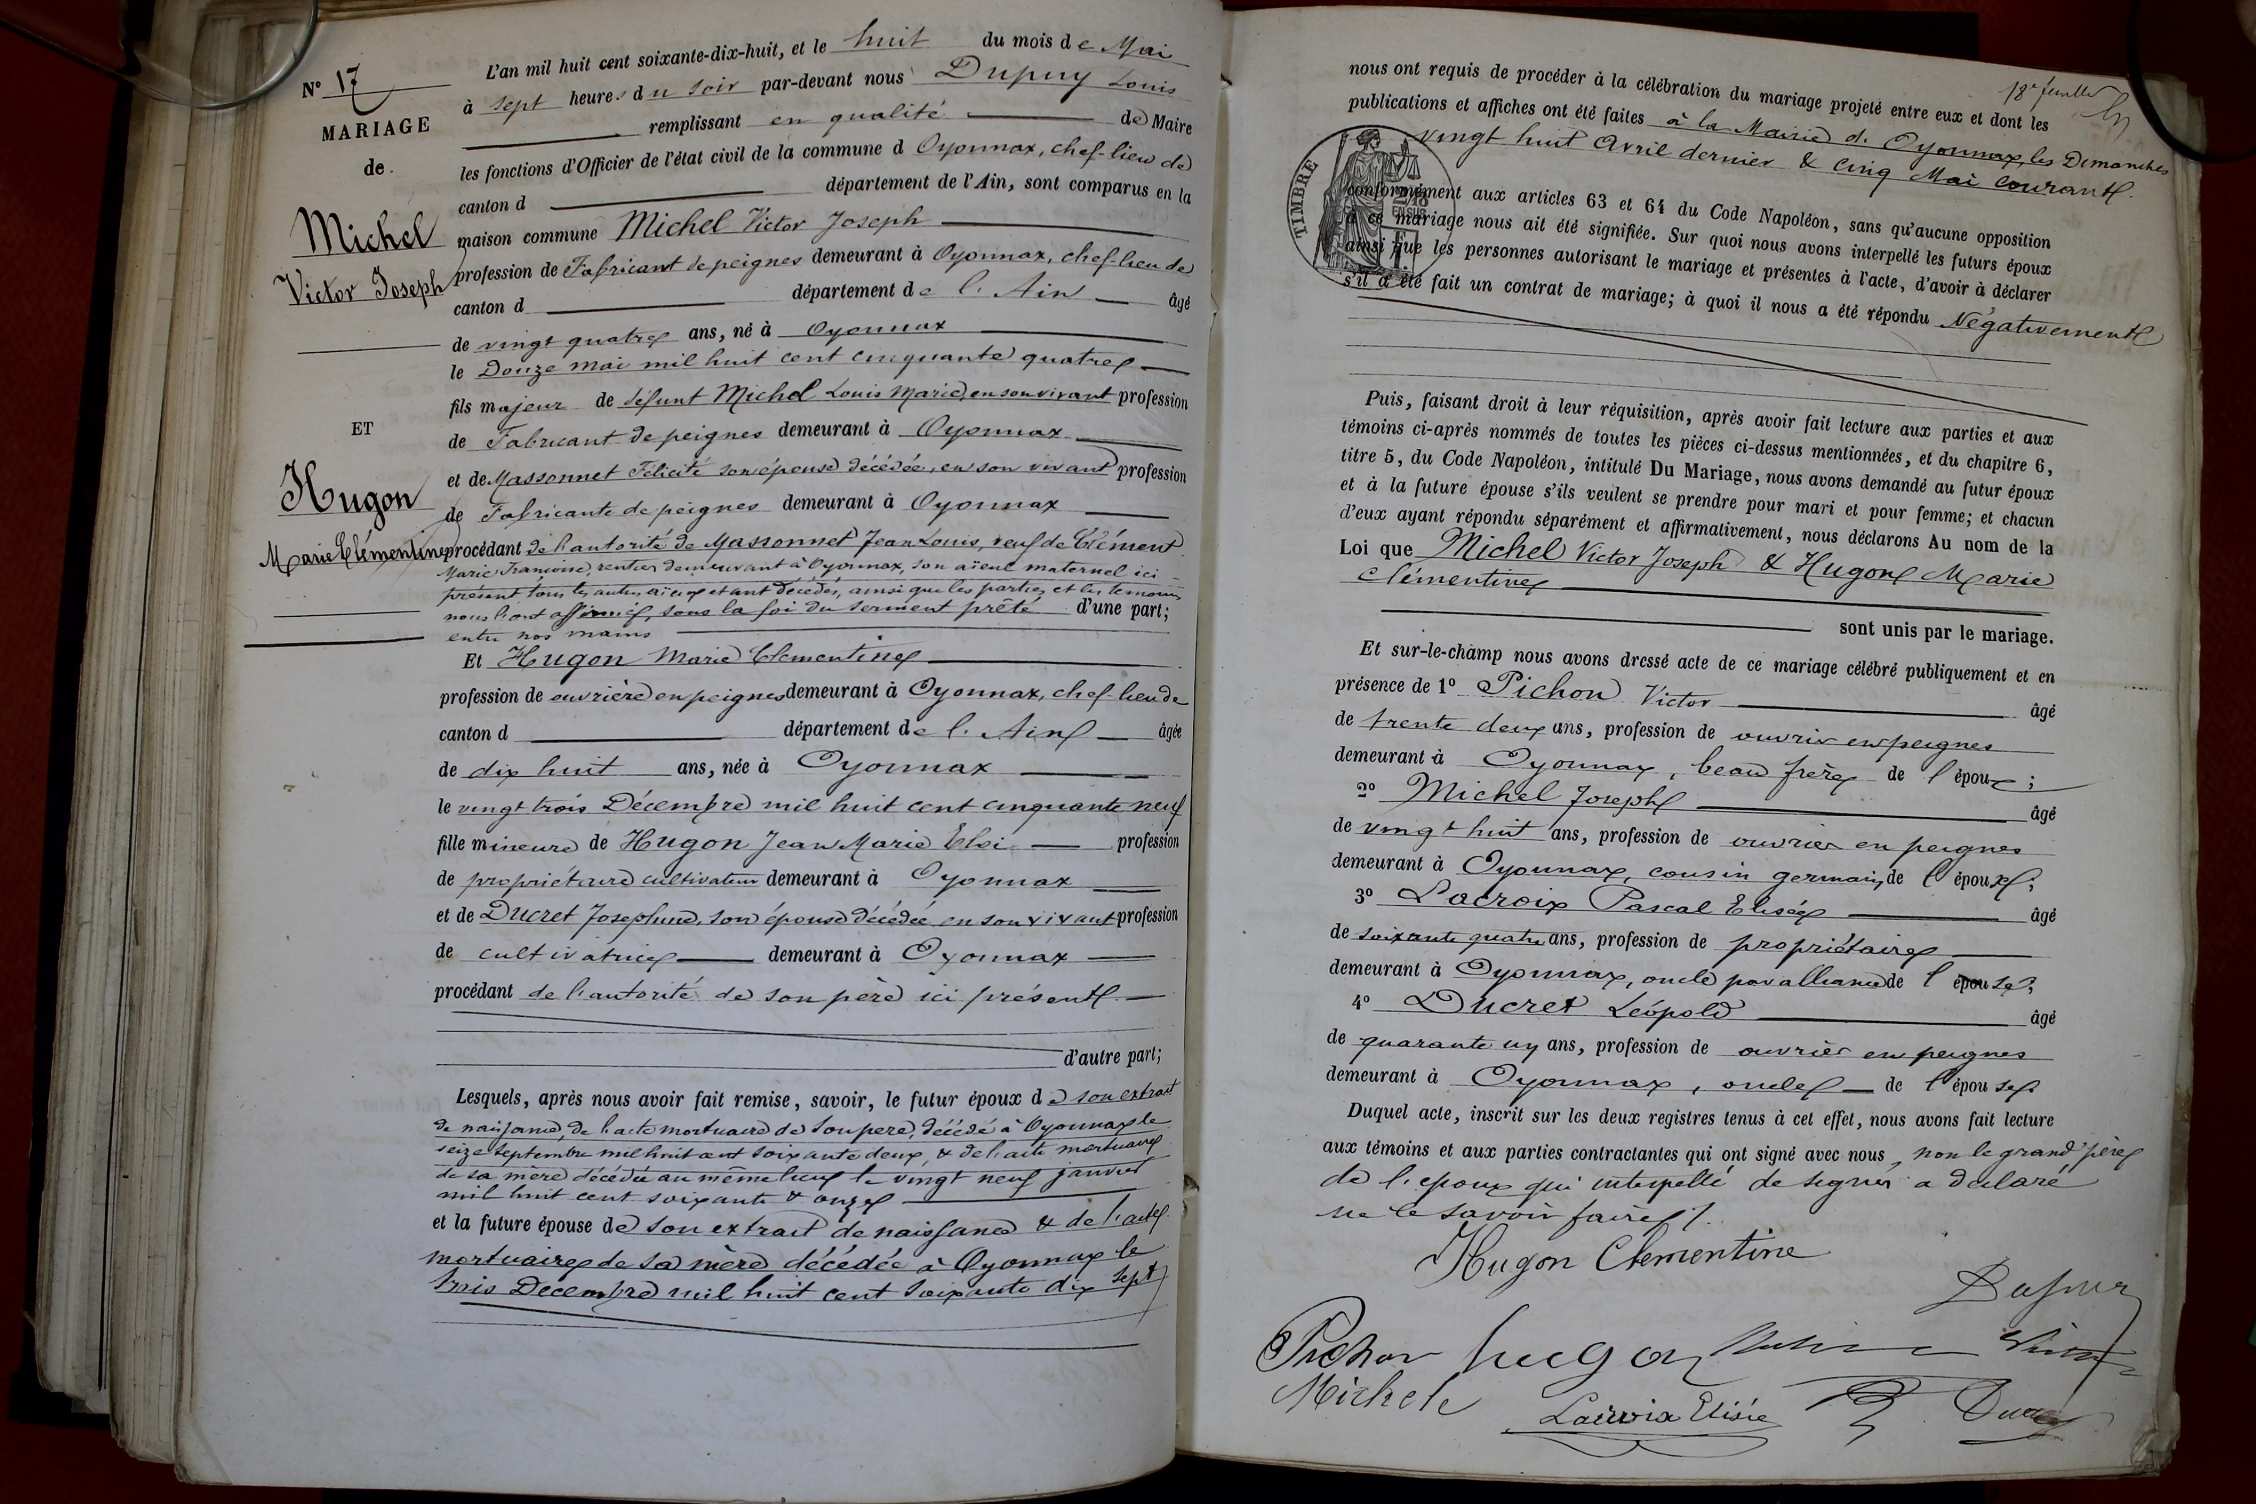 N° 17
MARIAGE
de
Michel
Victor Joseph
ET
Hugon
Marie Clémentine
L'an mil huit cent soixante-dix-huit, et le huit du mois de Mai
à sept heures du soir par-devant nous Dupuy Louis
remplissant en qualité de Maire
les fonctions d'Officier de l'état civil de la commune d Oyonnax, chef-lieu de
canton d département de l'Ain, sont comparus en la
maison commune Michel Victor Joseph
profession de Fabricant de peignes demeurant à Oyonnax, chef-lieu de
canton d département de l'Ain âgé
de vingt quatre ans, né à Oyonnax
le Douze mai mil huit cent cinquante quatre
fils majeur de défunt Michel Louis Marie, en son vivant profession
de Fabricant de peignes demeurant à Oyonnax
et de Massonnet Félicité son épouse décédée, en son vivant profession
de Fabricante de peignes demeurant à Oyonnax
procédant de l'autorité de Massonnet Jean Louis, veuf de Clément
Marie Françoise, rentier demeurant à Oyonnax, son aïeul maternel ici
présent tous les autres aïeux étant décédés, ainsi que les parties et les témoins
nous l'ont affirmé, sous la foi du serment prêté d'une part;
entre nos mains
Et Hugon Marie Clementine
profession de ouvrière en peignes demeurant à Oyonnax, chef-lieu de
canton d département de l'Ain âgée
de dix huit ans, née à Oyonnax
le vingt trois Décembre mil huit cent cinquante neuf
fille mineure de Hugon Jean Marie Eloi profession
de propriétaire cultivateur demeurant à Oyonnax
et de Ducret Josephine, son épouse décédée en son vivant profession
de cultivatrice demeurant à Oyonnax
procédant de l'autorité de son père ici présent
d'autre part;
Lesquels, après nous avoir fait remise, savoir, le futur époux de son extrait
de naissance, de l'acte mortuaire de son père, décédé à Oyonnax le
seize septembre mil huit cent soixante deux, & de l'acte mortuaire
de sa mère décédée au même lieu le vingt neuf janvier
mil huit cent soixante & onze
et la future épouse de son extrait de naissance & de l'acte
mortuaire de sa mère décédée à Oyonnax le
trois Décembre mil huit cent soixante dix sept
18e feuillet
nous ont requis de procéder à la célébration du mariage projeté entre eux et dont les
publications et affiches ont été faites à la Mairie d'Oyonnax, les Dimanches
vingt huit Avril dernier & cinq Mai courant
TIMBRE
conformément aux articles 63 et 64 du Code Napoléon, sans qu'aucune opposition
à ce mariage nous ait été signifiée. Sur quoi nous avons interpellé les futurs époux
ainsi que les personnes autorisant le mariage et présentes à l'acte, d'avoir à déclarer
s'il a été fait un contrat de mariage; à quoi il nous a été répondu Négativement
Puis, faisant droit à leur réquisition, après avoir fait lecture aux parties et aux
témoins ci-après nommés de toutes les pièces ci-dessus mentionnées, et du chapitre 6,
titre 5, du Code Napoléon, intitulé Du Mariage, nous avons demandé au futur époux
et à la future épouse s'ils veulent se prendre pour mari et pour femme; et chacun
d'eux ayant répondu séparément et affirmativement, nous déclarons Au nom de la
Loi que Michel Victor Joseph & Hugon Marie
Clémentine
sont unis par le mariage.
Et sur-le-champ nous avons dressé acte de ce mariage célébré publiquement et en
présence de 1° Pichon Victor âgé
de trente deux ans, profession de ouvrier en peignes
demeurant à Oyonnax, beau frère de l'époux;
2° Michel Joseph âgé
de vingt huit ans, profession de ouvrier en peignes
demeurant à Oyonnax, cousin germain, de l'époux;
3° Lacroix Pascal Elisée âgé
de soixante quatre ans, profession de propriétaire
demeurant à Oyonnax, oncle par alliance de l'épouse;
4° Ducret Léopold âgé
de quarante un ans, profession de ouvrier en peignes
demeurant à Oyonnax, oncle de l'épouse
Duquel acte, inscrit sur les deux registres tenus à cet effet, nous avons fait lecture
aux témoins et aux parties contractantes qui ont signé avec nous, non le grand père
de l'époux qui interpellé de signer a déclaré
ne le savoir faire /.
Hugon Clementine
Dupuy
Pichon hugon Victor
Michel
Lacroix Elisée Ducret